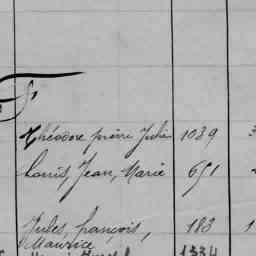 Théodore pierre Julien 1089
Louis, Jean, Marie 651
Jules, françois, 183 1
Maurice
1334